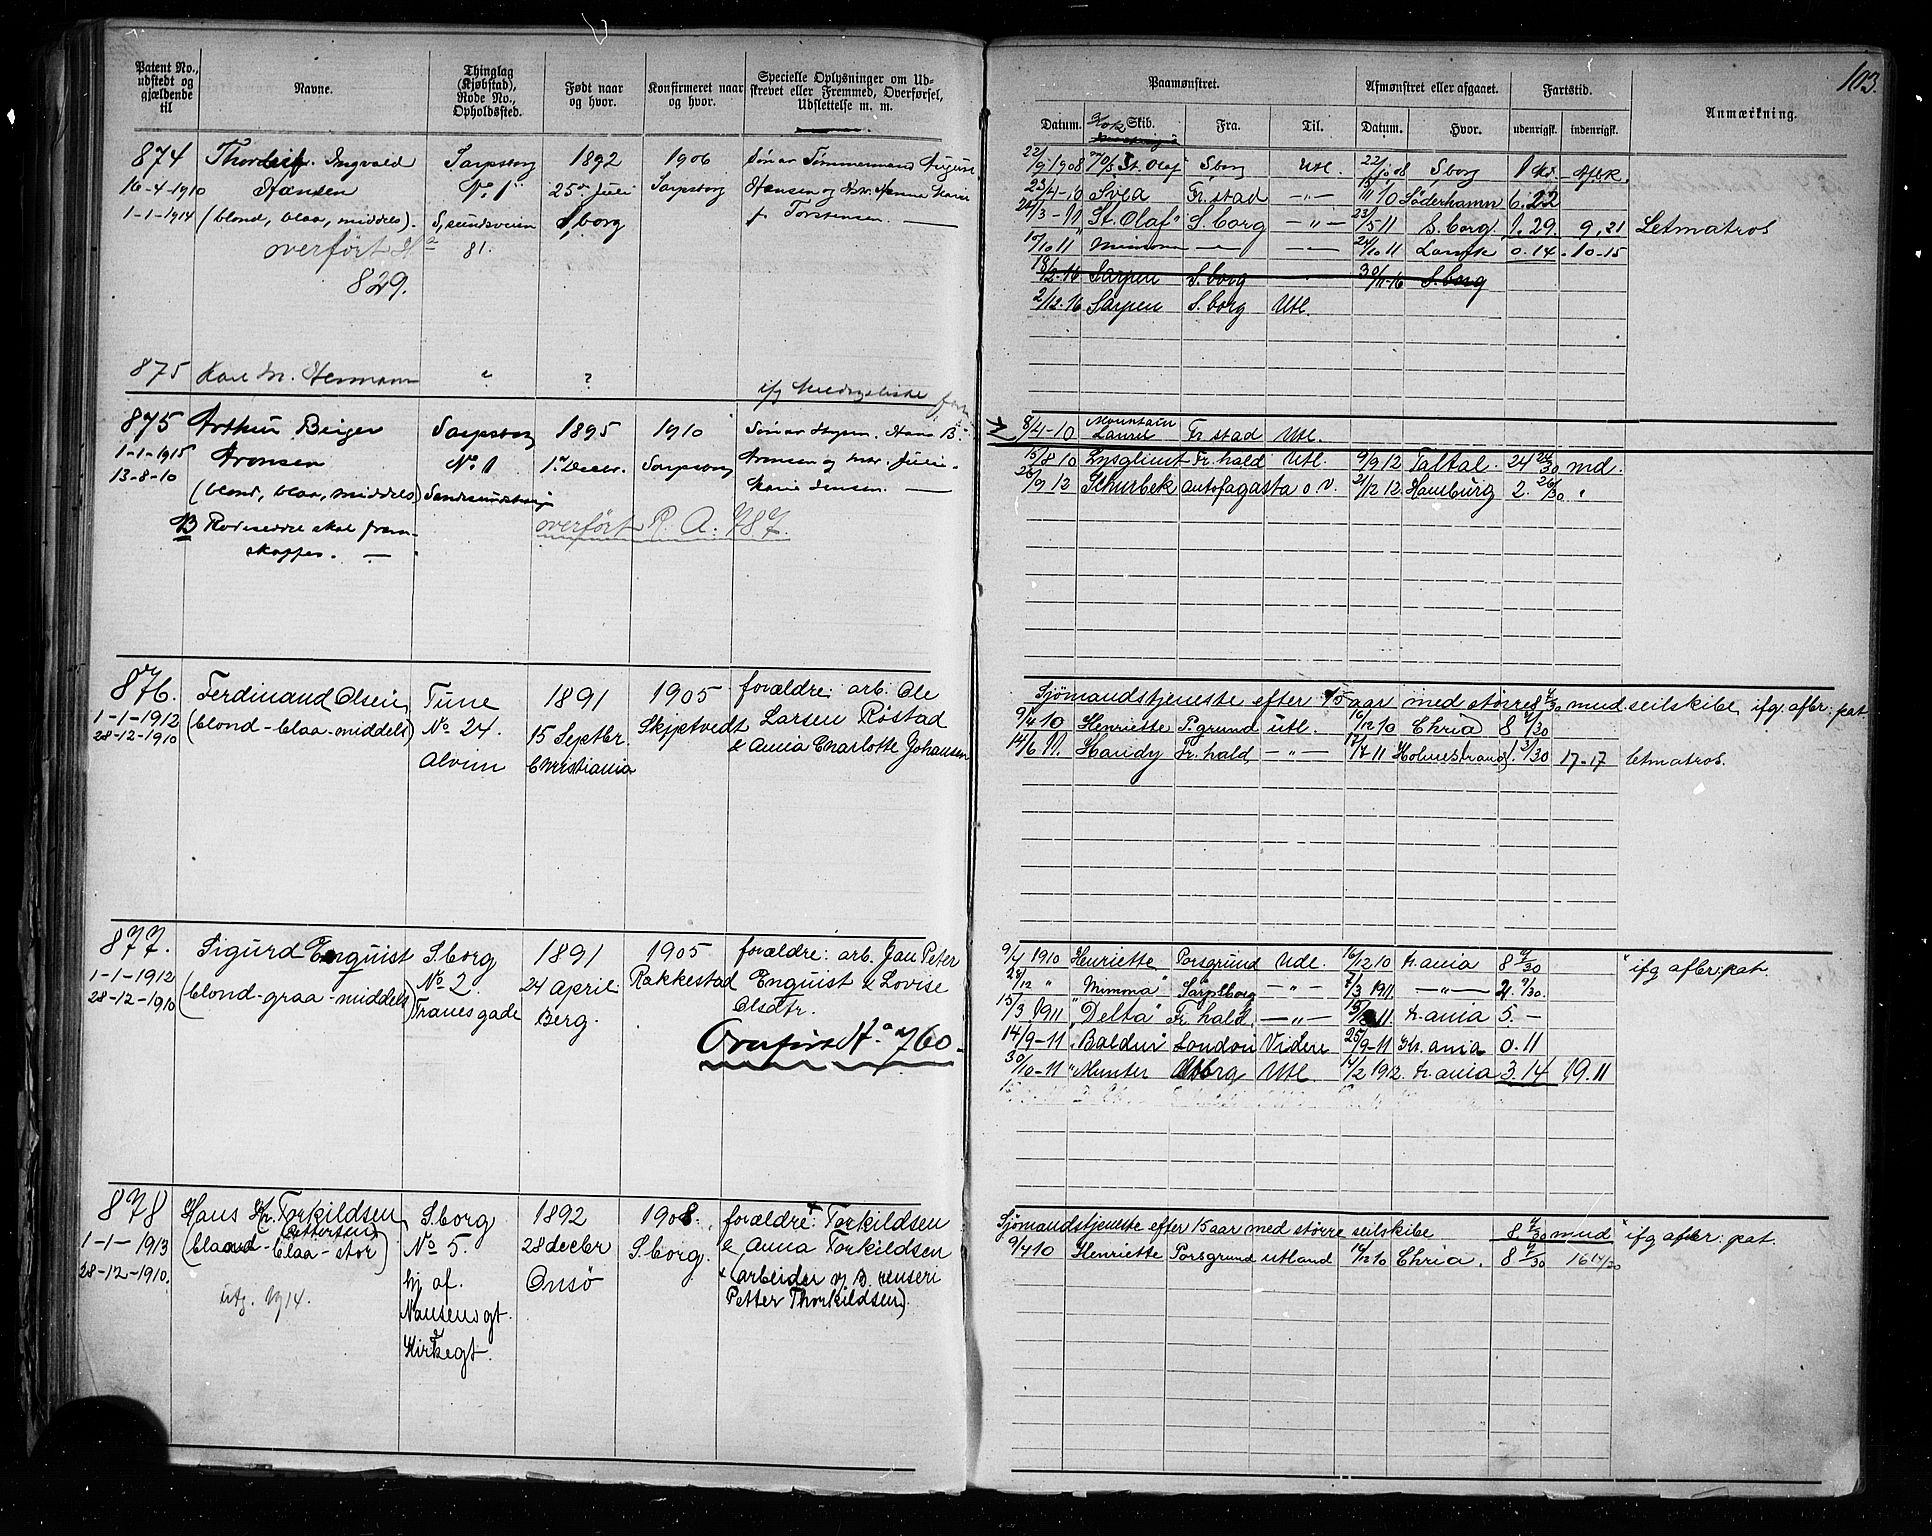 103.
Patent No., udstedt og gjældende til
Navne.
Thinglag (Kjøbstad), Rode No., Opholdssted.
Født naar og hvor.
Konfirmeret naar og hvor.
Specielle Oplysninger om Udskrevet eller Fremmed, Overførsel, Udslettelse m. m.
Paamønstret.
Afmønstret eller afgaaet.
Fartstid.
Anmærkning.
Datum.
Skib.
Fra.
Til.
Datum.
Hvor.
udenrigsk.
indenrigsk.
874
16-4-1910
1-1-1914
Ingvald
Hansen
(blond, blaa, middels)
overført No
829.
Sarpsborg
No 1
81.
1892
25de Juli
S,borg
1906
Sarpsborg
Søn av Tømmermand August
Hansen og
f. Torstensen. —
22/9 1908 St. Olaf S,borg Utl. S,borg
23/4-10 Svea Fr.stad —"— Söderhamn 6.22
"St. Olaf" S.borg —"— 23/5 11 S.borg 1.29. 9,21 Letmatros
10/10 11 24/10 11 0.14. 10-15
Sarpen S.borg 30/11-16 S.borg
2/12-16 Sarpen S.borg Utl.
875
Hermann
"
?
875
1-1-1915
13-8-10
Arthur Birger
Aronsen
(blond, blaa, middels)
skal frem-
skaffes. —
Sarpsborg
No 1
1895
1ste Decbr.
1910
Sarpsborg
Søn av Hans B.
Aronsen og
Marie Jensen. —
overført R. A. 787.
8/4-10 Mountain Laurel Fr.stad Utl.
15/8 10 Lysglimt Fr.hald Utl. 9/9 12 Taltal. 24 md.
26/9 12 Schurbek Antofagasta o.v. 21/12 12 Hamburg 2. 26/30 "
876.
1-1-1912
28-12-1910
Ferdinand Olsen
(blond-blaa-middels)
Tune
No 24.
Alvim
1891
15 Septbr.
Christiania
1905
Skjptvedt
forældre: arb. Ole
Larsen Røstad
& Anna Charlotte Johansen
Sjömandstjeneste efter 15 aar med större seilskibe ifg afbr: pat.
9/4 10 Henriette P.grund utl. 16/12 10 Chria 8 7/30
14/6 11. Handy Fr.hald —"— 17/7 11 Holmestrand 1. 3/30 17-17 letmatros.
877.
1-1-1912
28-12-1910
Sigurd Enquist
(blond-graa-middels)
S.borg
No 2.
Tranesgade
1891
24 April
Berg.
1905
Rakkestad
forældre: arb. Jan Peter
Enquist & Lovise
Olsdtr.
Overført No 760.
9/4 1910 Henriette Porsgrund Utl. 16/12 10 Kr.ania 8 7/30 ifg afbr: pat.
28/12 " Mimona " Sarpsborg —"— 7/3 1911. —"—
15/3 1911 "Delta" Fr.hald. —"— Kr.ania 5. —
14/9-11 "Baldur" London Videre 25/9-11 Kr.ania 0.11
30/10-11 "Munter S.borg Utl. 14/2 1912. Kr.ania 3.14 19.11
878
1-1-1913
28-12-1910.
Hans Kr. Torkildsen
(Pettersen)
(blond-blaa-stor)
utg. 1914.
S.borg
No 5.
hj. af.
Nansensgt.
Kirkegt.
1892
28 decbr
Onsö
1908.
S.borg.
forældre: Torkildsen
& Anna Torkildsen
(arbeider v/
Petter Thorkildsen).
Sjömandstjeneste efter 15 aar med större seilskibe 8. 7/30 mnd ifg afbr: pat.
9/4 10 Henriette Porsgrund utland 16/12 10 Chria. 8 7/30 16 14/30